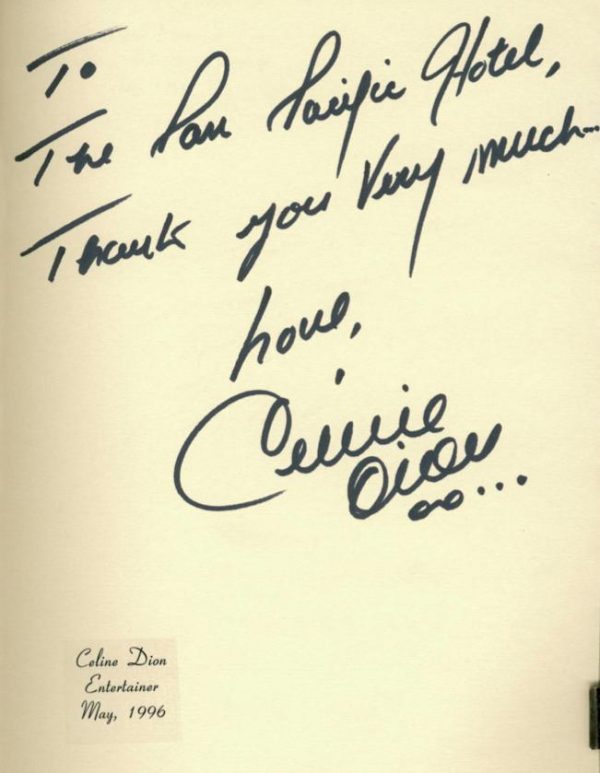 To
The Pan Pacific Hotel,
Thank you Very much...
Love,
Celine
Dion
oo...
Celine Dion
Entertainer
May, 1996